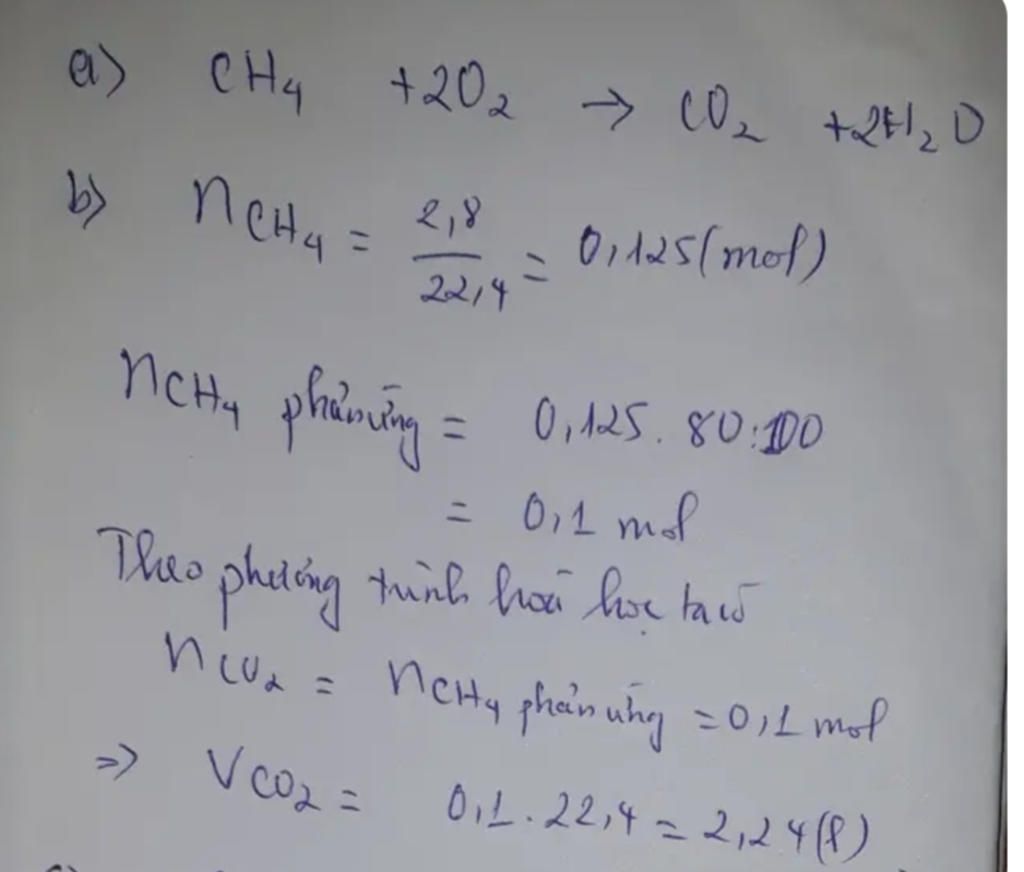 a) CH₄ +2O₂ → CO₂ +2H₂O
b) nCH₄ = 2,8/22,4 = 0,125(mol)
nCH₄ phản ứng = 0,125. 80:100
= 0,1 mol
Theo phương trình hoá học ta có
nCO₂ = nCH₄ phản ứng = 0,1 mol
=> VCO₂ = 0,1.22,4 = 2,24(l)